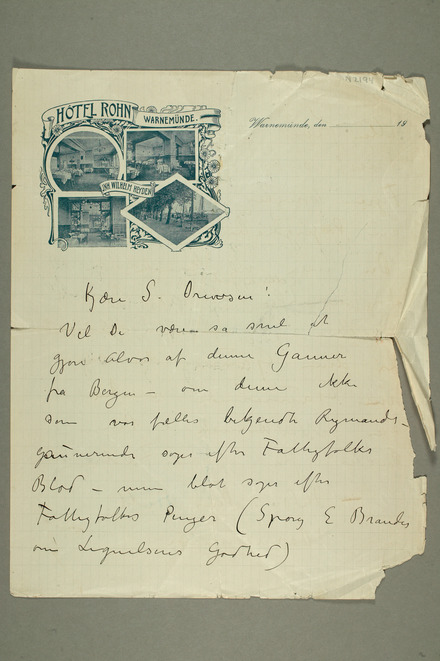 HÔTEL ROHN
WARNEMÜNDE.
INH. WILHELM HEYDEN
Warnemünde, den 19
Kjære S.
Vil De være så snil at
gjøre alvor af denne Gauner
fra Bergen – om denne ikke
som vor fælles bekjendte Rigmands-
gaunerinde søger efter Fattigfolks
Blod – men blot søger efter
Fattigfolks Penger (Spørg E Brandes
om Godhed)